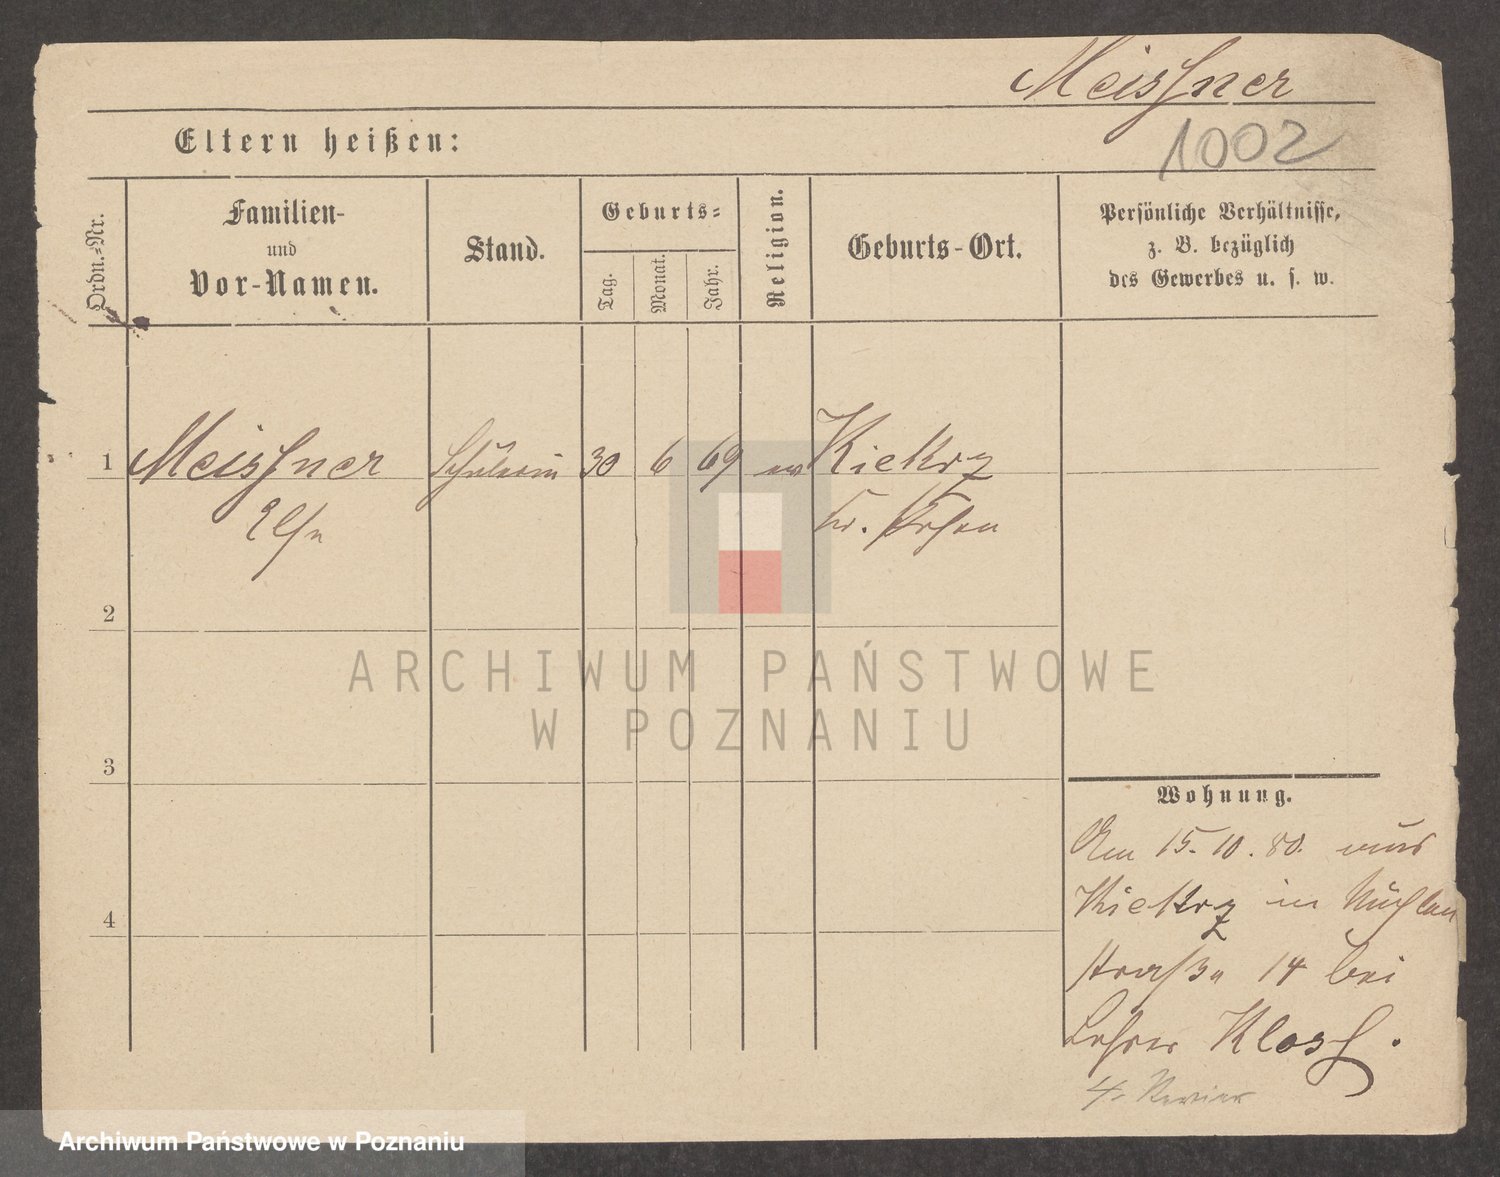 Meisſner
1002
Eltern heißen:
Ordn.-Nr.
Familien-
und
Vor-Namen.
Stand.
Geburts-
Tag.
Monat.
Jahr.
Religion.
Geburts-Ort.
Persönliche Verhältnisse,
z. B. bezüglich
des Gewerbes u. s. w.
1 Meisſner Schülerin 30 6 69 ev Kiekrz
Else Kr. Posen
2
3
4
Wohnung.
Am 15.10.80. aus
Kiekrz in Mühlen
straße 14 bei
Lehrer Klosſ.
4. Revier
ARCHIWUM PAŃSTWOWE
W POZNANIU
Archiwum Państwowe w Poznaniu